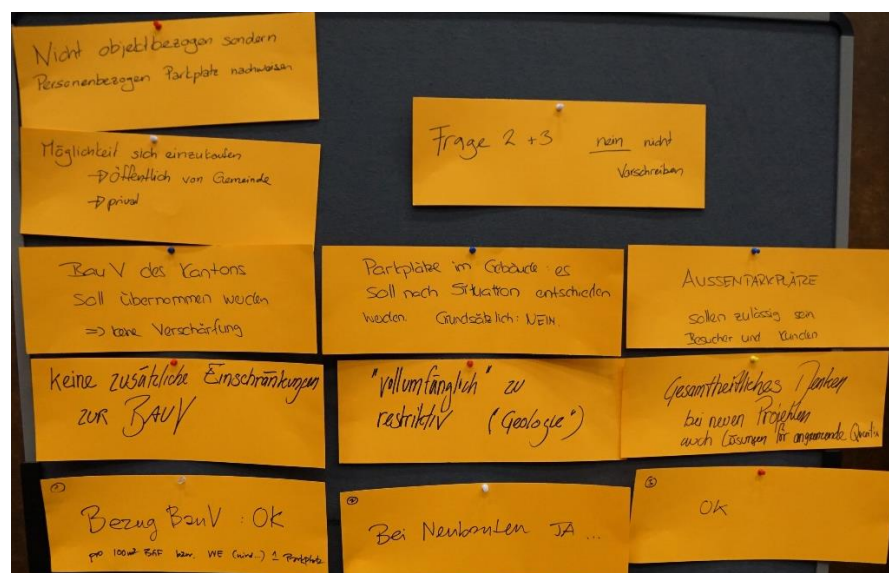 Nicht objektbezogen sondern
Personenbezogen Parkplatz nachweisen
Frage 2 + 3 nein nicht
Vorschreiben
Möglichkeit sich einzukaufen
→ Öffentlich von Gemeinde
→ privat
BauV des Kantons
soll übernommen werden
=> keine Verschärfung
Parkplätze im Gebäude: es
soll nach Situation entschieden
werden. Grundsätzlich: NEIN.
AUSSENPARKPLÄTZE
sollen zulässig sein
Besucher und Kunden
Keine zusätzliche Einschränkungen
zur BAUV
"vollumfänglich" zu
restriktiv ("Geologie")
Gesamtheitliches Denken
bei neuen Projekten
auch Lösungen für angrenzende
Bezug BauV : OK
pro 100m² bzw. WE 1 Parkplatz
Bei Neubauten JA ...
OK